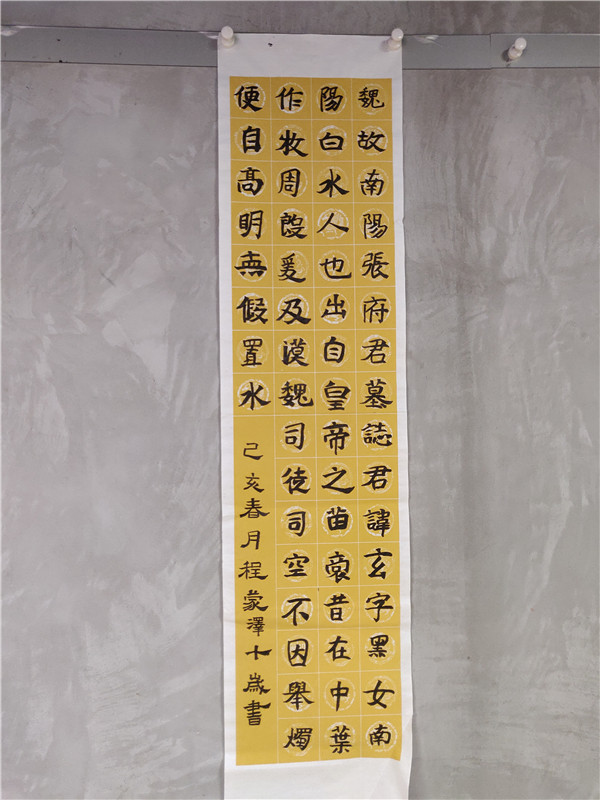 魏故南陽張府君墓誌君諱玄字黑女南
陽白水人也出自皇帝之苗裔昔在中葉
作牧周殷爰及漢魏司徒司空不因舉燭
便自高明無假置水
己亥春月程蒙澤十歲書